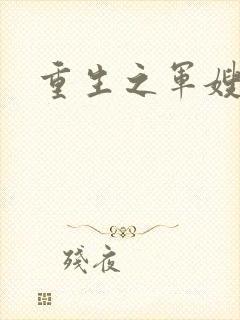 重生之军嫂
残夜